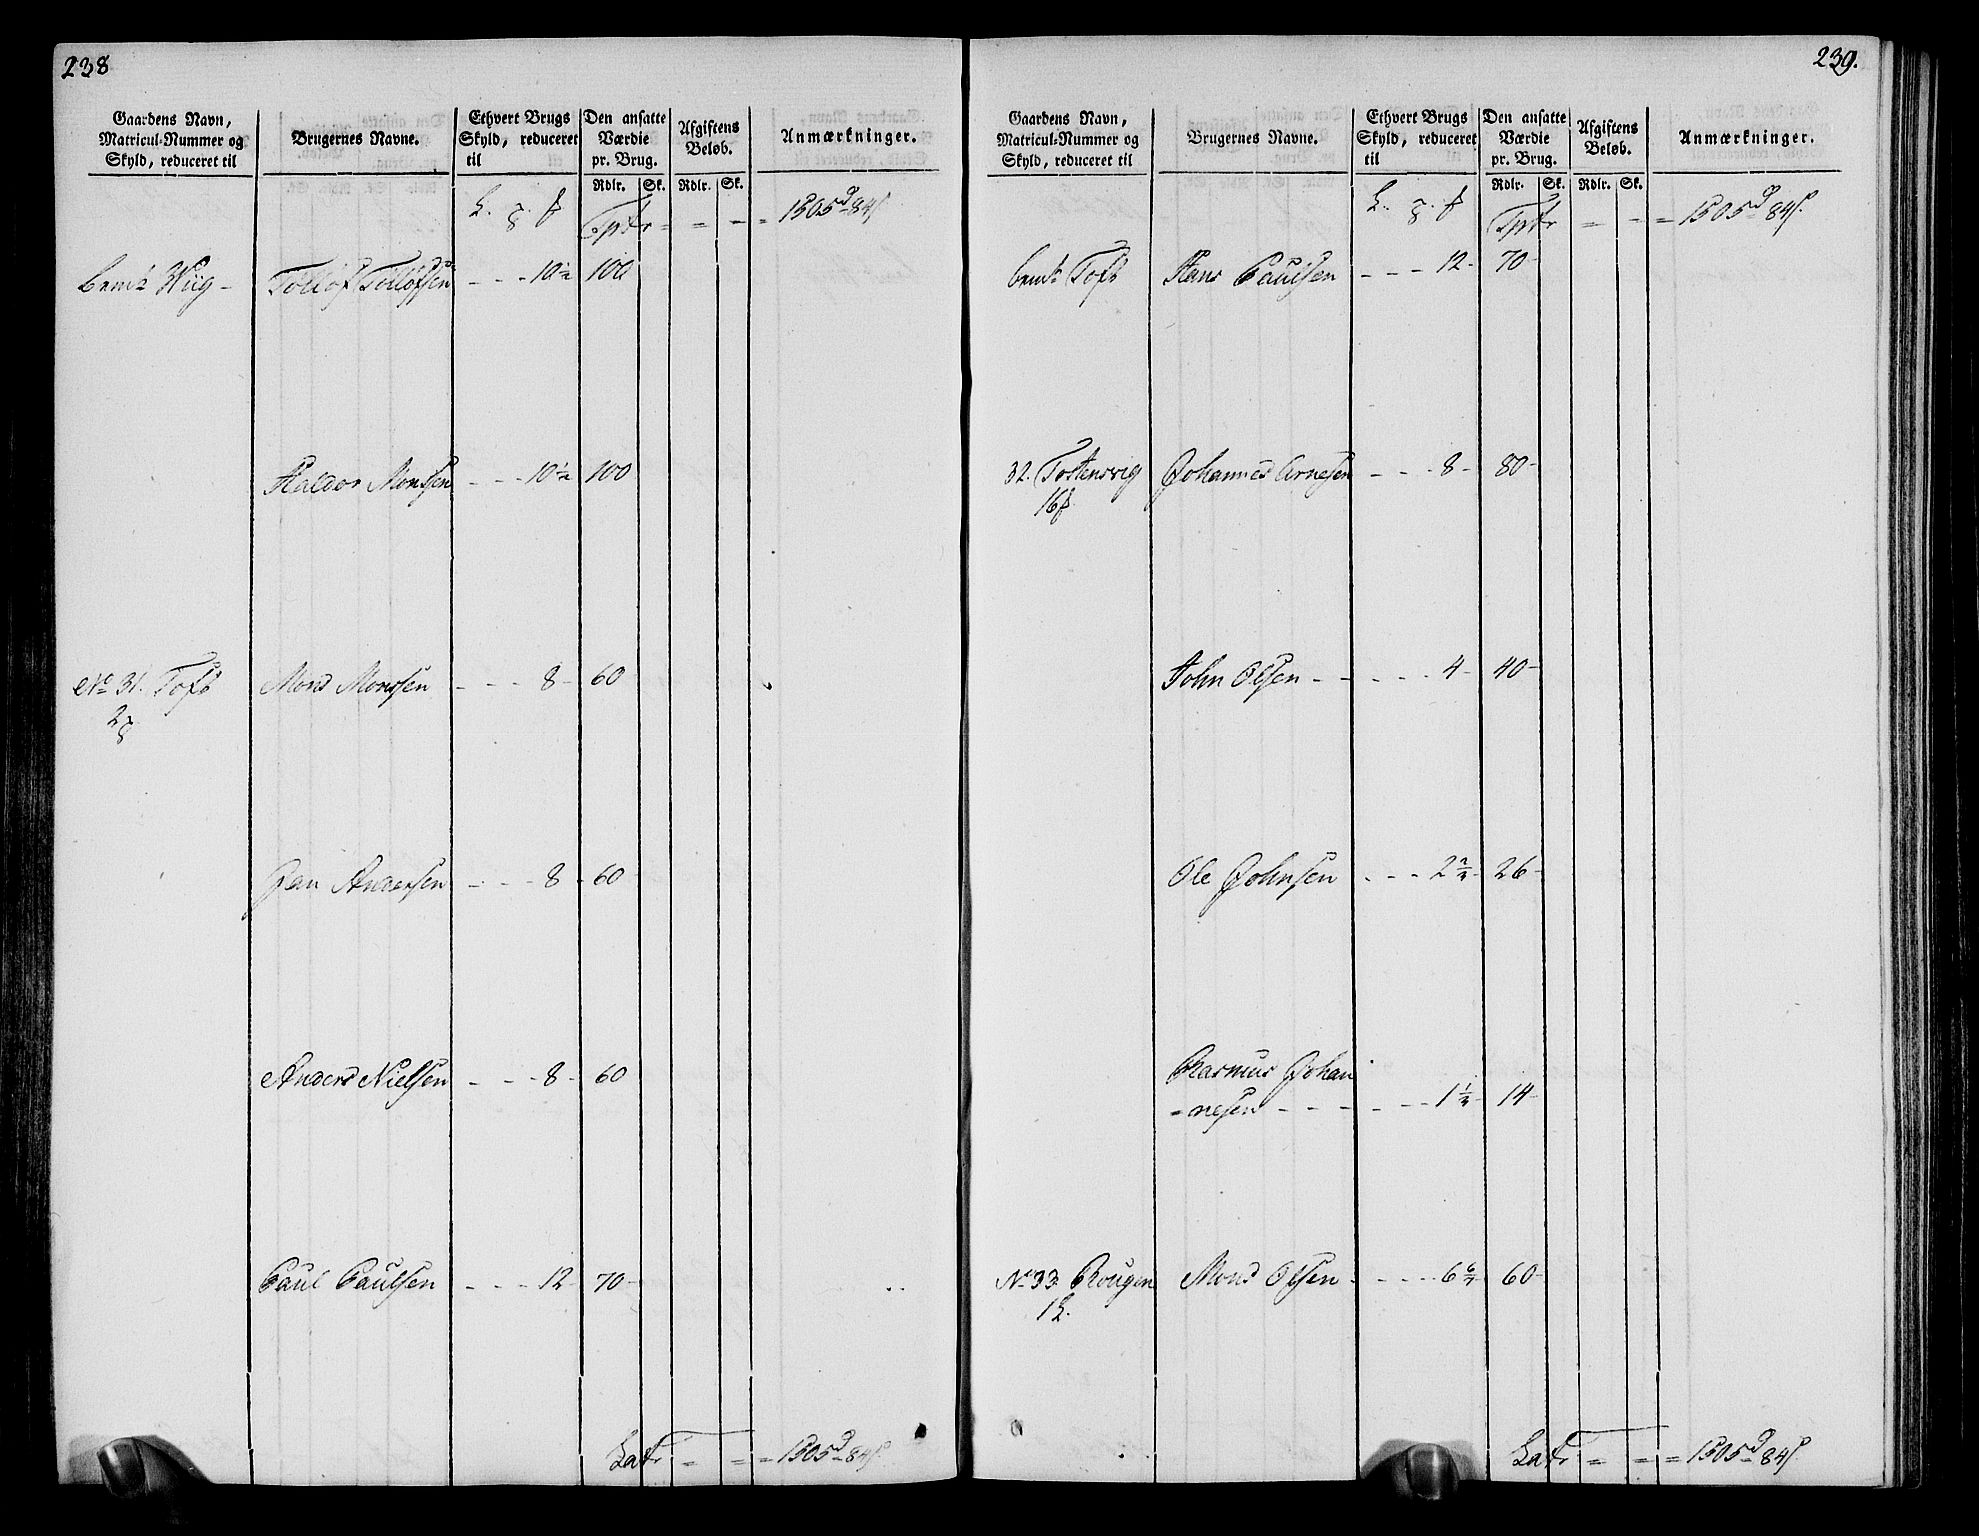 238
Gaardens Navn, Matricul-Nummer og Skyld, reduceret til
Brugernes Navne.
Ethvert Brugs Skyld, reduceret til
Den ansatte Værdie pr. Brug.
Afgiftens Beløb.
Anmærkninger.
Rdlr. Sk. Rdlr. Sk.
Tptr = - - = 1505 84
Wiig - Tollof Tollofsen - - - 10½ 100
Haldor Monssen - - - 10½ 100
No 31. Toft Mons Monssen - - - 8 - 60
2
Jan Andersen - - - 8 - 60
Anders Nielsen - - - 8 - 60
Paul Paulsen - - - 12 - 70 -
Latr = = = 1505 84
239.
Gaardens Navn, Matricul-Nummer og Skyld, reduceret til
Brugernes Navne.
Ethvert Brugs Skyld, reduceret til
Den ansatte Værdie pr. Brug.
Afgiftens Beløb.
Anmærkninger.
Rdlr. Sk. Rdlr. Sk.
Tptr = - = 1505 84
Toft Hans Paulsen - - - 12 - 70 -
32. Tostensvig Johannes Arnesen - - - 8 - 80 -
16
John Olsen - - - - - 4 - 40 -
Ole Johnsen - - - 2 26 -
Rasmus Johan
= nesen - - - - - - 1 14 -
No 33. Rougen Mons Olsen - - - - 6 6/7 - 60 -
1
Latr = = = 1505 84